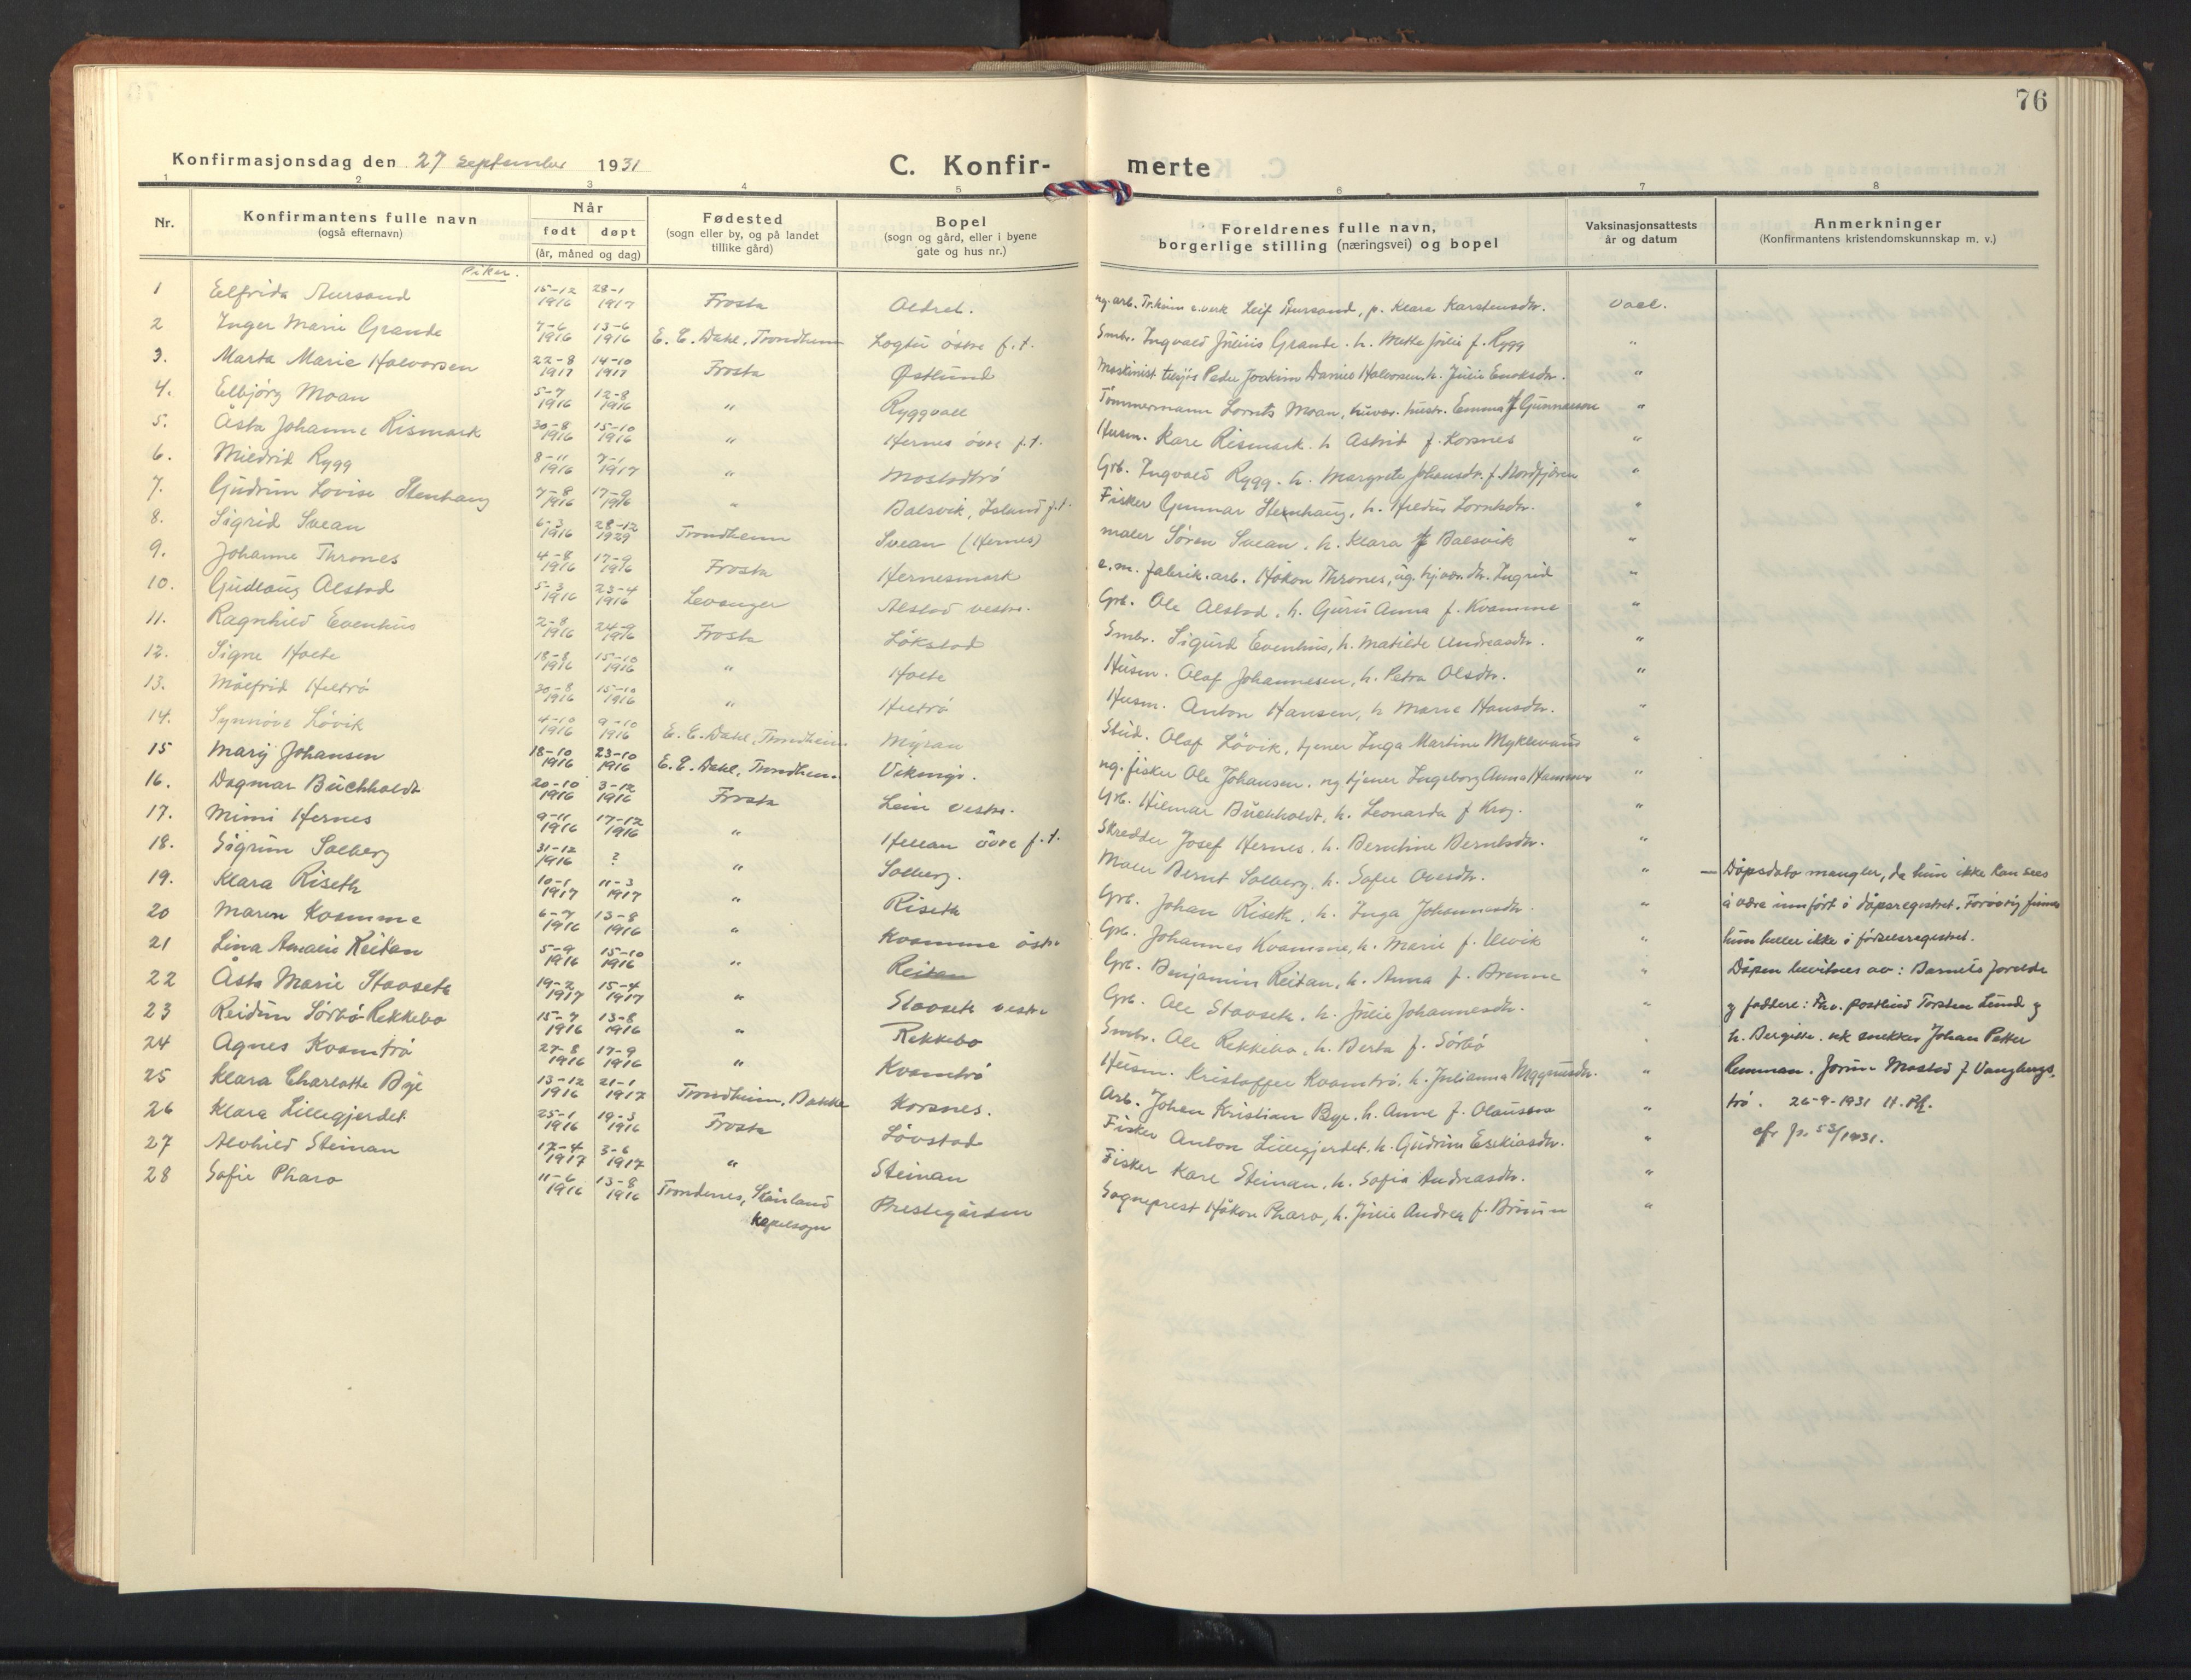 76
Konfirmasjonsdag den 27 september 1931
C. Konfir- merte
1 2 3 4 5 6 7 8
Nr.
Konfirmantens fulle navn
(også efternavn)
Når
født døpt
(år, måned og dag)
Fødested
(sogn eller by, og på landet
tillike gård)
Bopel
(sogn og gård, eller i byene
gate og hus nr.)
Foreldrenes fulle navn,
borgerlige stilling (næringsvei) og bopel
Vaksinasjonsattests
år og datum
Anmerkninger
(Konfirmantens kristendomskunnskap m. v.)
Piker.
1 Elfrida Aursand 15-12 1916 28-1 1917 Frosta Aldret. ug. arb. Tr.heim e.verk Leif Aursand, p. Klara Karstensdtr. vacc.
2 Inger Marie Grande 7-6 1916 13-6 1916 E. C. Dahl, Trondheim Logtu östre f.t. Smbr. Ingvald Julius Grande. h. Mette Julie f. Rygg "
3. Marta Marie Halvorsen 22-8 1917 14-10 1917 Frosta Østlund Maskinist Peder Joakim Daniel Halvorsen. h. Julie Enoksdtr. "
4. Elbjörg Moan 5-7 1916 12-8 1916 " Ryggvall Tömmermann Lornts Moan, hustr. Emma f Gunnarson "
5. Åsta Johanne Rismark 30-8 1916 15-10 1916 " Hernes övre f.t. Husm. Kare Rismark. h Astrid f. Korsnes "
6. Mildrid Rygg 8-11 1916 7-1 1917 " Mostadtrö Grb. Ingvald Rygg. h. Margrete Johansdr. f. Nordfjæren "
7. Gudrun Lovise Stenhaug 7-8 1916 17-9 1916 " Balsvik, Island f.t. Fisker Gunnar Stenhaug, h. Hildus Lorntsdtr. "
8. Sigrid Svean 6-3 1916 28-12 1929 Trondheim Svean (Hernes) maler Sören Svean. h. Klara f Balsvik "
9. Johanne Thrones 4-8 1916 17-9 1916 Frosta Hernesmark e.m. fabrik.arb. Håkon Thrones, ug. hjv. dtr. Ingrid "
10. Gudlaug Alstad 5-3 1916 23-4 1916 Levanger Alstad vestre. Grb. Ole Alstad. h. Guru Anna f. Kvamme "
11. Ragnhild Evenhus 2-8 1916 24-9 1916 Frosta Lökstad Smbr. Sigurd Evenhus, h. Matilde Andreasdtr. "
12. Signe Holte 18-8 1916 15-10 1916 " Holte Husm. Olaf Johannesen, h. Petra Olsdtr. "
13. Målfrid Hultrö 20-8 1916 15-10 1916 " Hultrö Husm. Anton Hansen, h Marie Hansdtr. "
14. Synnöve Lövik 4-10 1916 9-10 1916 E. C. Dahl, Trondheim Myran Stud. Olaf Lövik, tjener Inga Martine Myklevand "
15 Mary Johansen 18-10 1916 23-10 1916 E. C. Dahl, Trondheim Vikings. ug. fisker Ole Johansen. ug tjener Ingeborg Anna Hammer "
16. Dagmar Buchholdt 20-10 1916 3-12 1916 Frosta Lein vestre. Grb. Hilmar Buchholdt, h. Leonarda f Krog. "
17. Mimi Hernes 9-11 1916 17-12 1916 " Hellan övre f.t. Skredder Josef Hernes. h. Berntine Berntsdtr. "
18. Sigrun Solberg 31-12 1916 ? " Solberg. Maler Bernt Solberg. h. Sofie Olesdtr. " — Dåpsdato mangler, da hun ikke kan sees
19. Klara Riseth 10-1 1917 11-3 1917 " Riseth Grb. Johan Riseth, h. Inga Johannesdtr. " å være innfört i dåpsregistret. Forövrig finnes
20 Maren Kvamme 6-7 1916 13-8 1916 " Kvamme östre Grb. Johannes Kvamme, h. Marie f. Ulvik " hun heller ikke i fødselsregistret.
21 Lina Amalie Reitan 5-9 1916 15-10 1916 " Reitan Grb. Benjamin Reitan, h. Anna f. Brenne " Dåpen bevitnes av: Barnets foreldre
22 Åsta Marie Stavseth 19-2 1917 15-4 1917 " Stavseth vestre Grb. Ole Stavseth. h. Julie Johannesdtr. " og faddere: Fhv. postbud Torsten Lund og
23 Reidun Sörbö-Rekkebo 15-7 1916 13-8 1916 " Rekkebo Smbr. Ole Rekkebo. h. Berta f. Sörbö h. Bergitte. snekker Johan Petter
24 Agnes Kvamtrö 27-8 1916 17-9 1916 " Kvamtrö Husm. Kristoffer Kvamtrö, h. Julianna Magnusdtr. " Remman. Jorun Mostad f Vangbergs-
25 Klara Charlotte Bye 13-12 1916 21-1 1917 Trondheim, Bakke Korsnes. Arb. Johan Kristian Bye. h. Anne f. Olaussen " trö. 26-9-1931 H. Ph.
26 Klara Lillegjerdet 25-1 1916 19-3 1916 Frosta Lövstad Fisker Anton Lillegjerdet. h. Gudrun Esekiasdtr. " cfr jr. 53/1931.
27 Alvhild Steinan 17-4 1917 3-6 1917 " Steinan Fisker Kare Steinan. h. Sofia Andreasdtr. "
28 Sofie Pharo 11-6 1916 13-8 1916 Trondenes, Skånland Kapelsogn Prestegården Sogneprest Håkon Pharo, h. Julie Andrea f. Bruun "